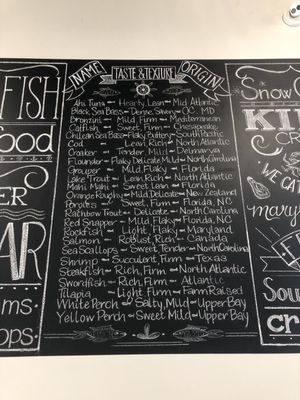 NAME TASTE & TEXTURE ORIGIN
Ahi Tuna - Hearty, Lean - Mid Atlantic
Black Sea Bass - Dense, Snowy - OC, MD
Bronzini - Mild, Firm - Mediterranean
Catfish - Sweet, Firm - Chesapeake
Chilean Sea Bass - Flaky, Buttery - South Pacific
Cod - Lean, Rich - North Atlantic
Croaker - Tender, Mild - Delmarva
Flounder - Flaky, Delicate, Mild - North Carolina
Grouper - Mild, Flaky - Florida
Lake Trout - Lean, Rich - North Atlantic
Mahi Mahi - Sweet, Lean - Florida
Orange Roughy - Mild, Delicate - New Zealand
Sweet, Firm - Florida, NC
Rainbow Trout - Delicate - North Carolina
Red Snapper - Mild, Flaky - Florida, NC
Rockfish - Light, Flaky - Maryland
Salmon - Robust, Rich - Canada
Sea Scallops - Sweet, Tender - North Carolina
Shrimp - Succulent, Firm - Texas
Steakfish - Rich, Firm - North Atlantic
Swordfish - Rich, Firm - Atlantic
Tilapia - Light, Firm - Farm Raised
White Perch - Salty, Mild - Upper Bay
Yellow Perch - Sweet, Mild - Upper Bay
FISH
ood
ER
AR
ms
ops
Snow
KI
we ca
mary
F
Sou
cr